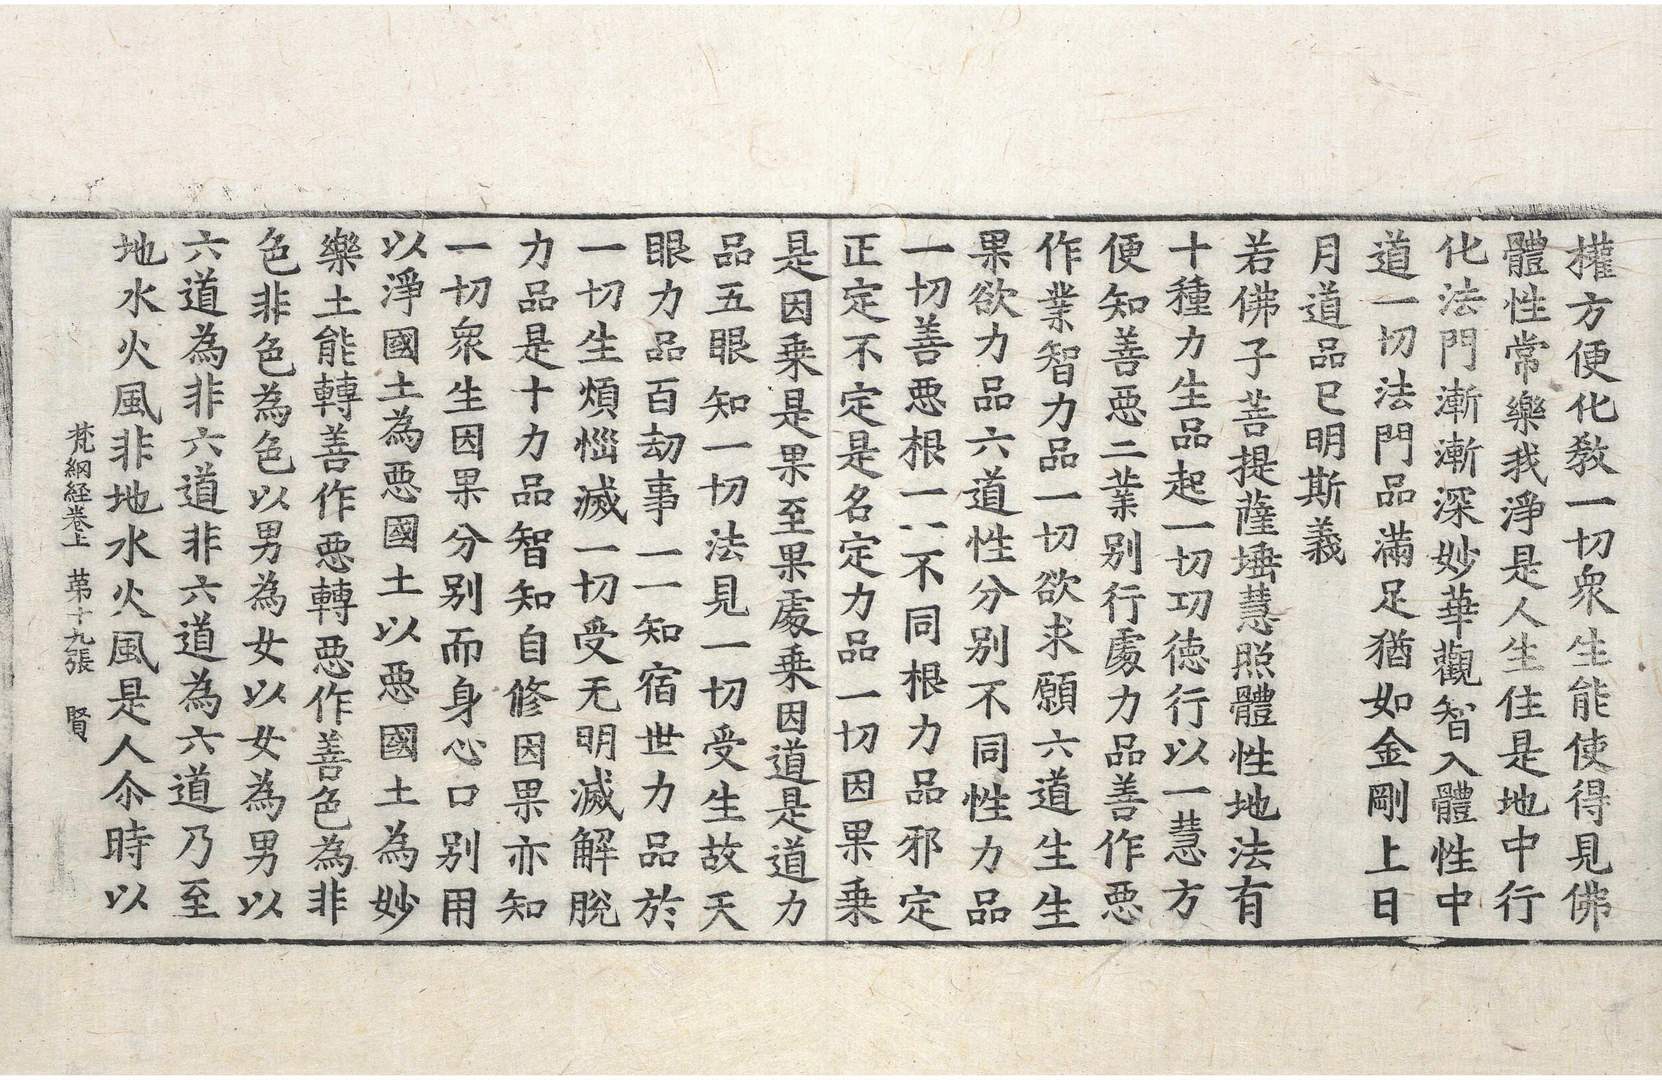 權方便化敎一切衆生能使得見佛
體性常樂我淨是人生住是地中行
化法門漸漸深妙華觀智入體性中
道一切法門品滿足猶如金剛上日
月道品已明斯義
若佛子菩提薩埵慧照體性地法有
十種力生品起一切功德行以一慧方
便知善惡二業別行處力品善作惡
作業智力品一切欲求願六道生生
果欲力品六道性分別不同性力品
一切善惡根一一不同根力品邪定
正定不定是名定力品一切因果乗
是因乗是果至果處乗因道是道力
品五眼知一切法見一切受生故天
眼力品百劫事一一知宿世力品於
一切生煩惱滅一切受无明滅解脫
力品是十力品智知自修因果亦知
一切衆生因果分別而身心口別用
以淨國土為惡國土以惡國土為妙
樂土能轉善作惡轉惡作善色為非
色非色為色以男為女以女為男以
六道為非六道非六道為六道乃至
地水火風非地水火風是人尒時以
梵網経卷上 苐十九張 賢